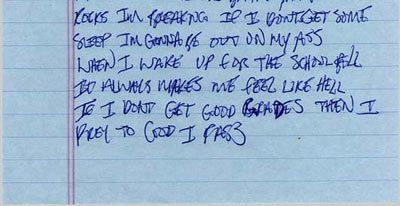 ROCKS I'M BREAKING IF I DON'T GET SOME
SLEEP I'M GONNA BE OUT ON MY ASS
WHEN I WAKE UP FOR THE SCHOOL BELL
IT ALWAYS MAKES ME FEEL LIKE HELL
IF I DONT GET GOOD GRADES THEN I
PREY TO GOD I PASS